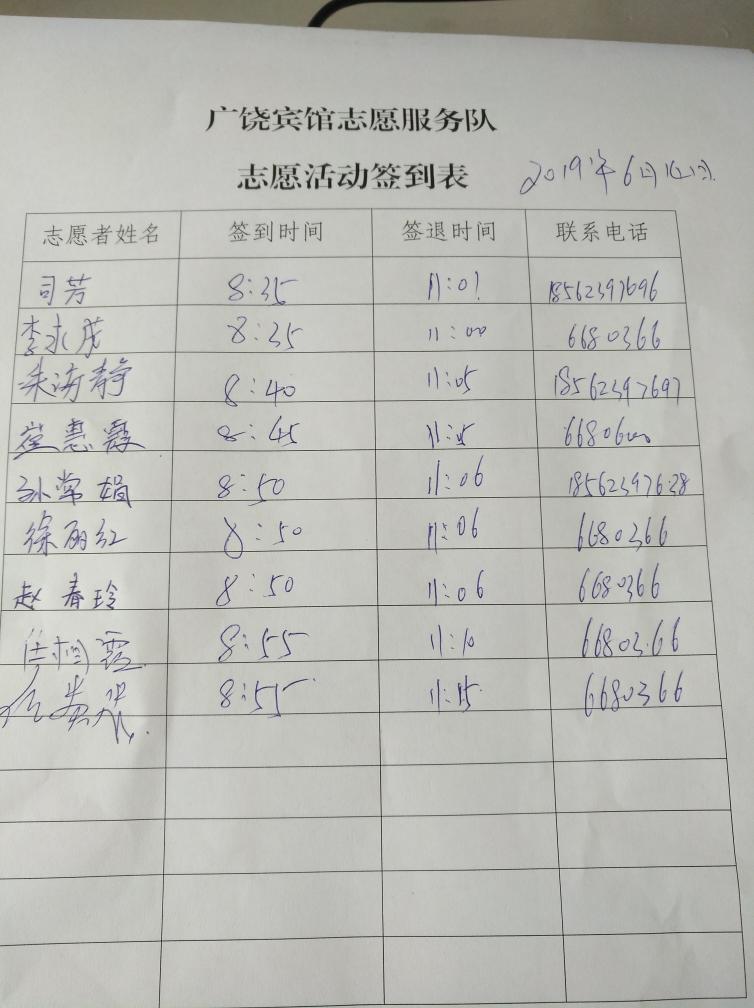 广饶宾馆志愿服务队
志愿活动签到表 2019年6月
志愿者姓名 签到时间 签退时间 联系电话
司芳 8:35 11:01 18562397696
李永茂 8:35 11:00 6680366
朱海静 8:40 11:05 18562397697
慧霞 8:45 11:05
孙常娟 8:50 11:06 18562397628
徐丽红 8:50 11:06 6680366
赵春玲 8:50 11:06 6680366
霞 8:55 11:10 6680366
8:55 11:15 6680366